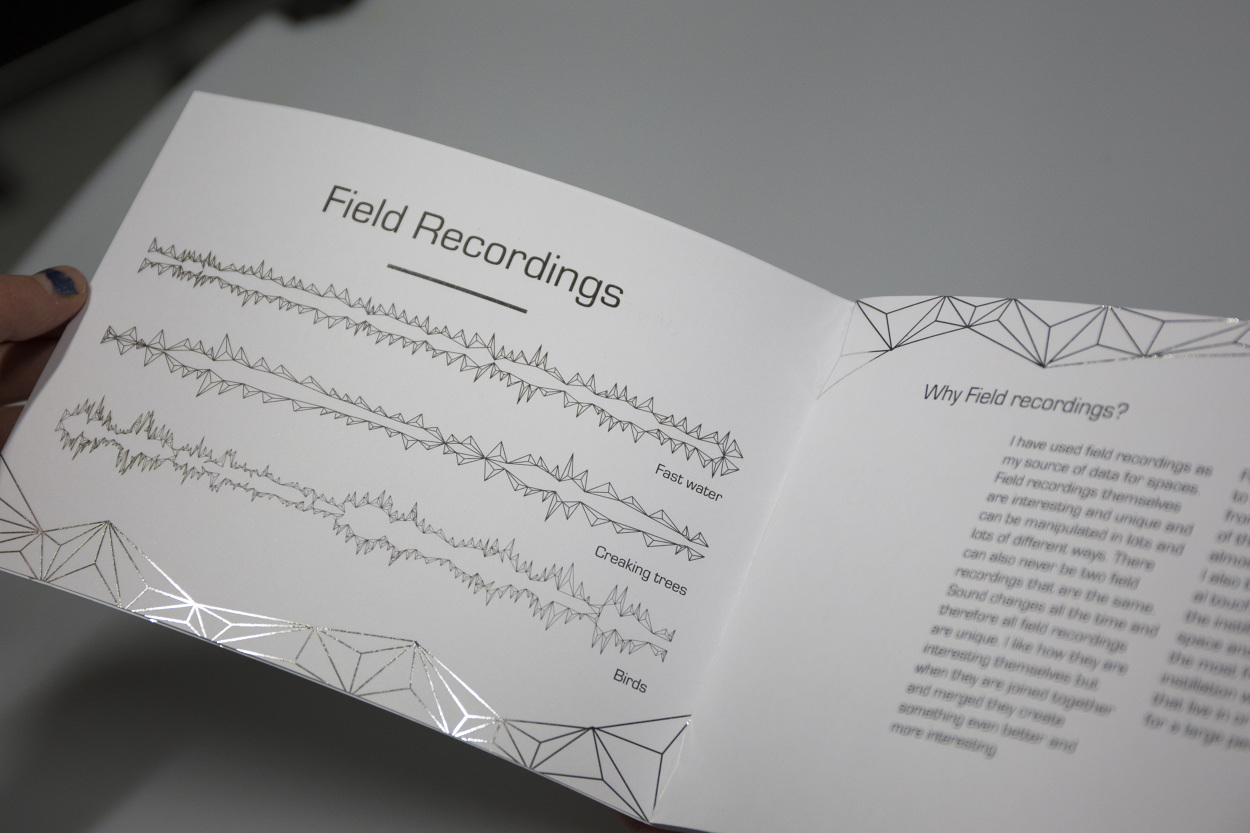 Field Recordings
Fast water
Creaking trees
Birds
Why Field recordings?
I have used field recordings as
my source of data for spaces.
Field recordings themselves
are interesting and unique and
can be manipulated in lots and
lots of different ways. There
can also never be two field
recordings that are the same.
Sound changes all the time and
therefore all field recordings
are unique. I like how they are
interesting themselves but
when they are joined together
and merged they create
something even better and
more interesting
to
of th
almo
I also
al touch
the insta
space and
the most
instillation
that live in
for a large